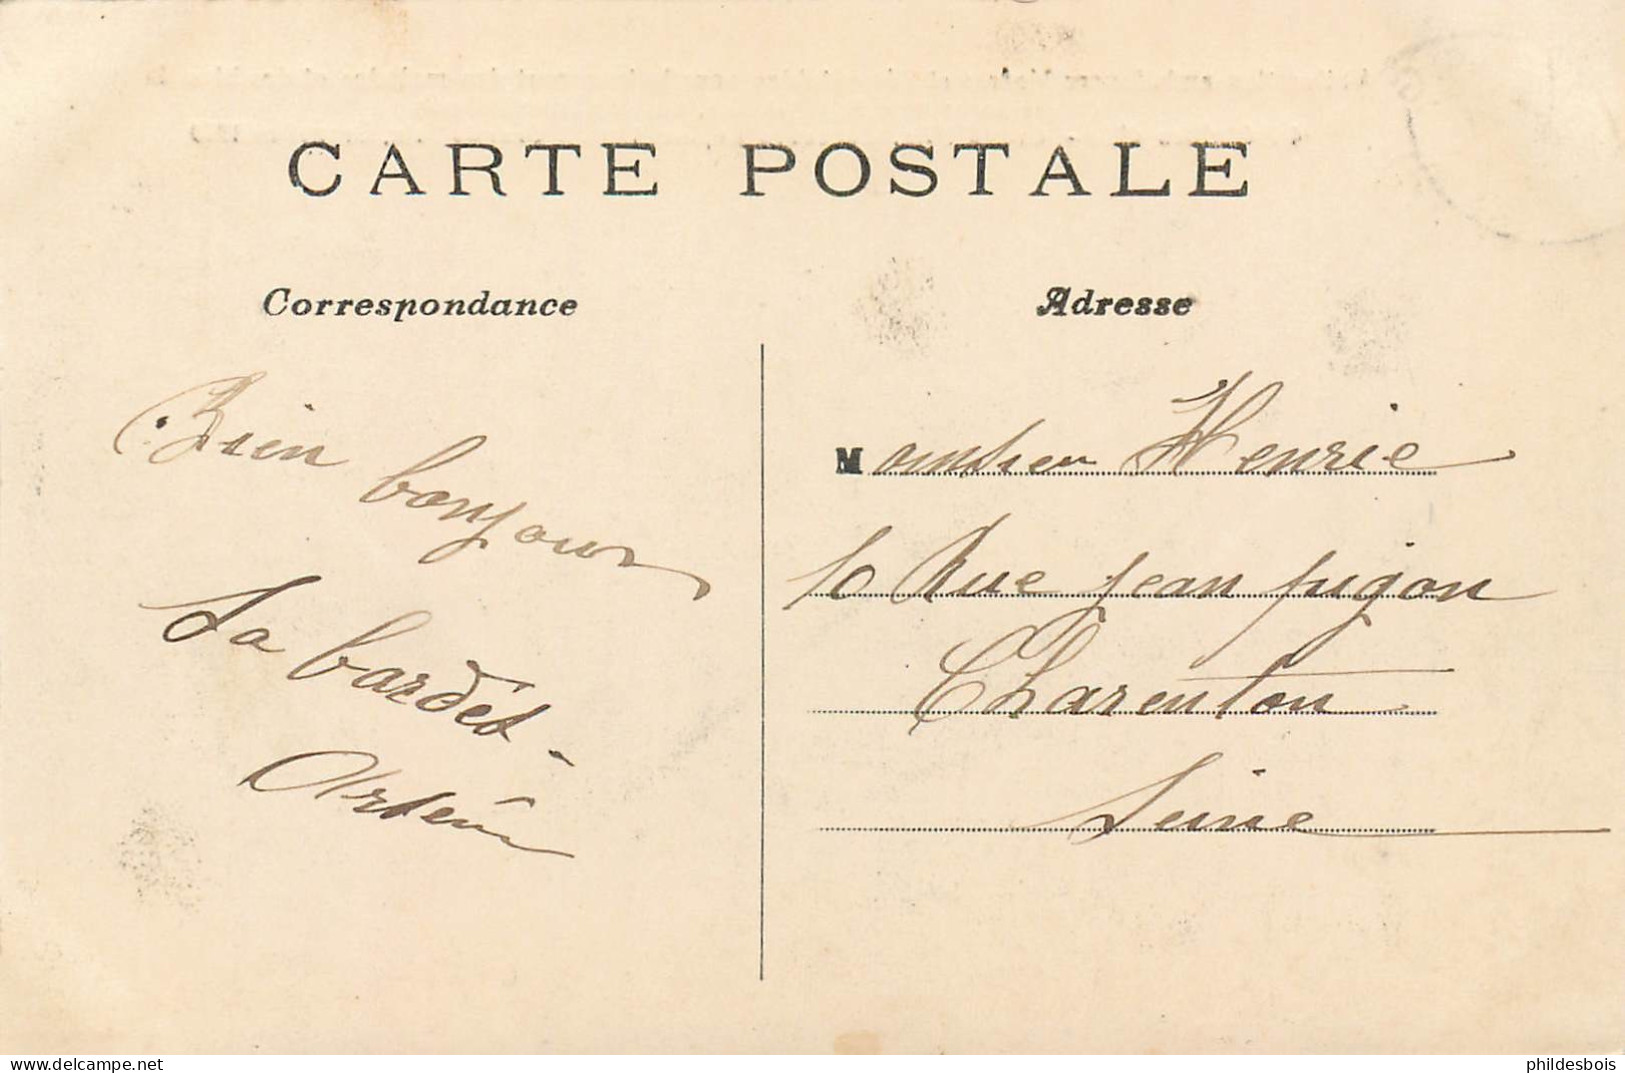 CARTE POSTALE
Correspondance
Adresse
Bien bonjour
La bardet
Monsieur Henrie
10 Rue jean pigeon
Charenton
Seine
delcampe.net
phildesbois